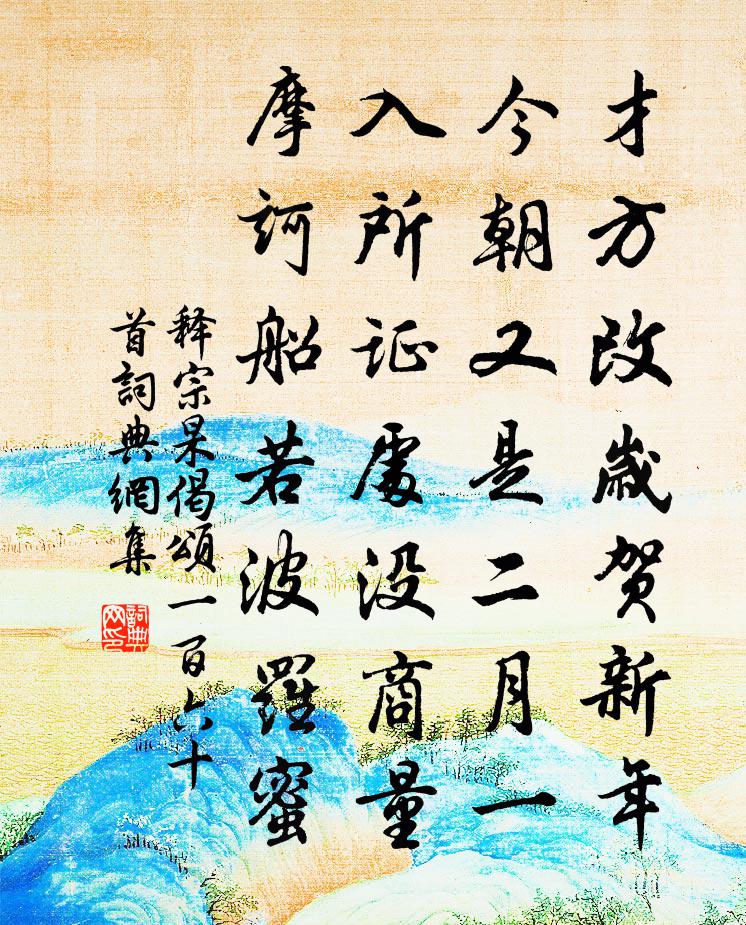 才方改歲贺新年
今朝又是二月一
入所证處没商量
摩訶船若波羅蜜
释宗杲偈頌一百六十
首詞典網集
詞典
网印